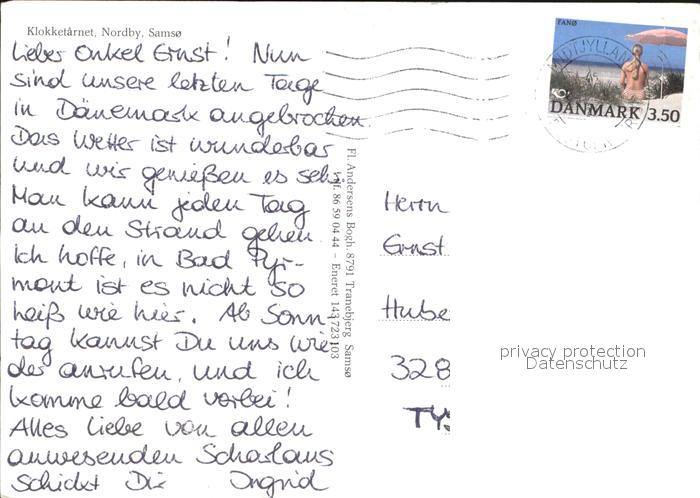 Klokketårnet, Nordby, Samsø
Lieber Onkel Ernst! Nun
sind unsere letzten Tage
in Dänemark angebrochen.
Das Wetter ist wunderbar
und wir genießen es sehr.
Man kann jeden Tag
an den Strand gehen.
Ich hoffe, in Bad Pyr-
mont ist es nicht so
heiß wie hier. Ab Sonn-
tag kannst Du uns wie-
der anrufen, und ich
komme bald vorbei!
Alles Liebe von allen
anwesenden
Schickt Dir Ingrid
Fl. Andersens Bogh. 8791 Tranebjerg Samsø
Tlf. 86 59 04 44 – Eneret 143 723 103
FANØ
DANMARK 3.50
Herrn
Ernst
Hube
328
TYS
privacy protection
Datenschutz